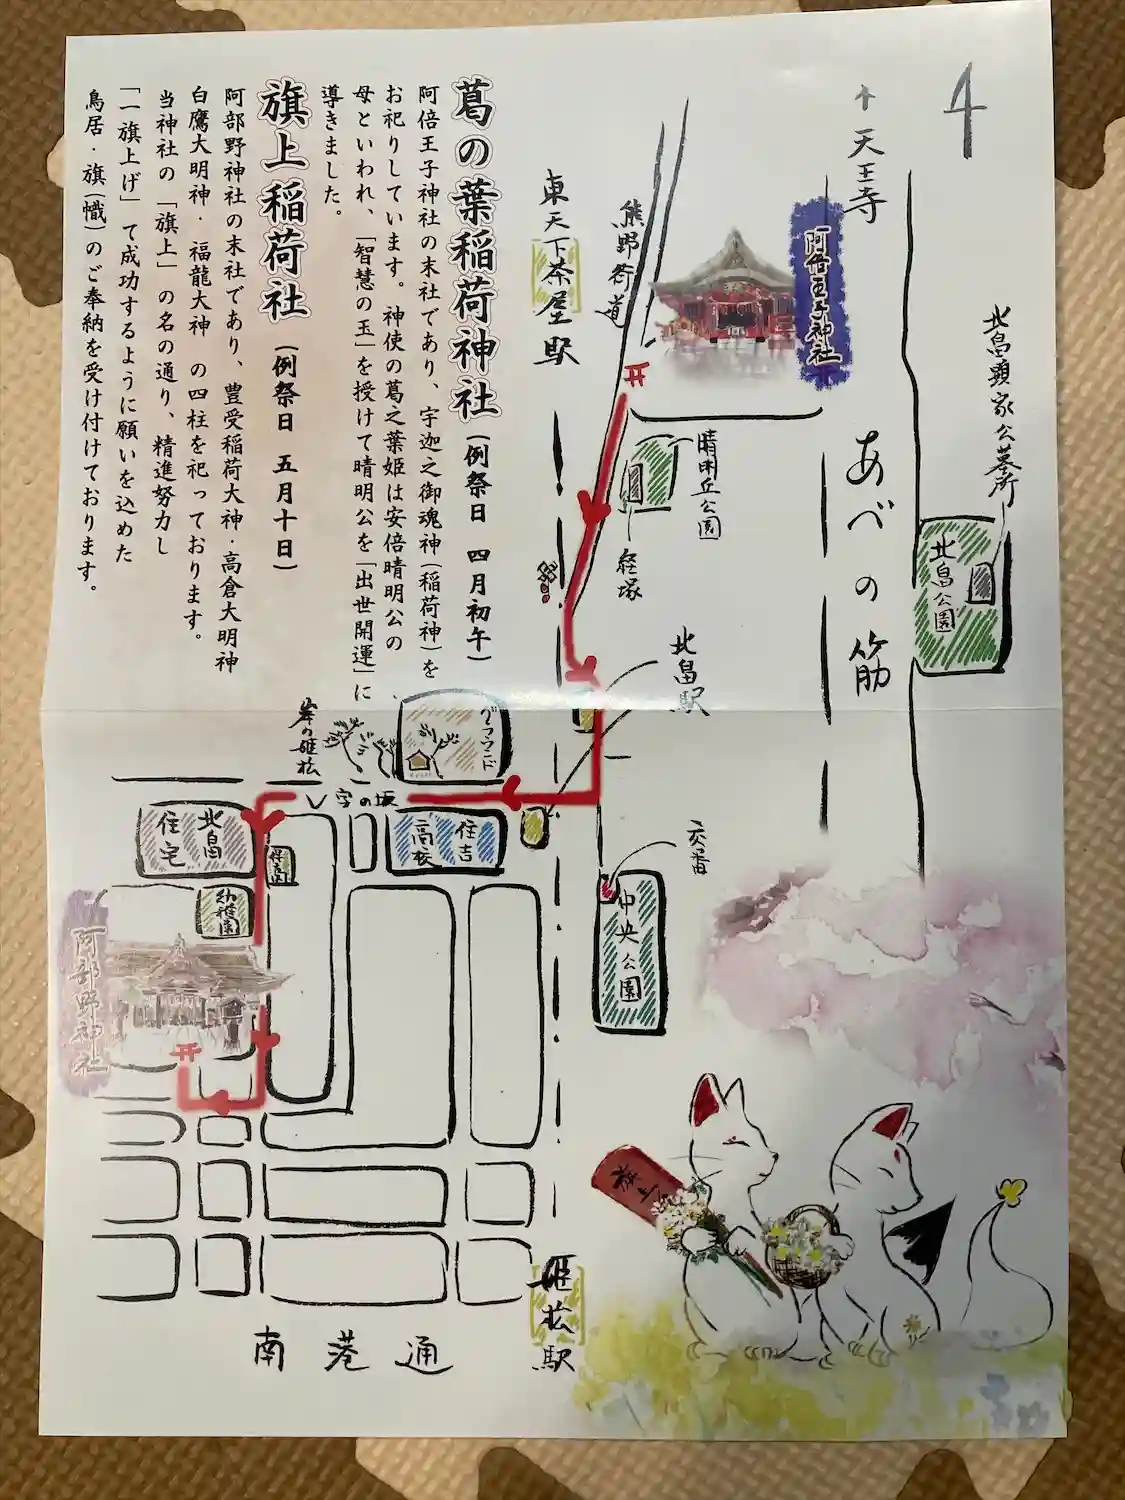 葛の葉稲荷神社(例祭日 四月初午)
阿倍王子神社の末社であり、宇迦之御魂神(稲荷神)を
お祀りしています。神使の葛之葉姫は安倍晴明公の
母といわれ、「智慧の玉」を授けて晴明公を「出世開運」に
導きました。
旗上稲荷社(例祭日 五月十日)
阿部野神社の末社であり、豊受稲荷大神・高倉大明神
白鷹大明神・福龍大神 の四柱を祀っております。
当神社の「旗上」の名の通り、精進努力し
「一旗上げ」て成功するように願いを込めた
鳥居・旗(幟)のご奉納を受け付けております。
↑天王寺
阿倍王子神社
熊野街道
東天下茶屋駅
北畠顕家公墓所
北畠公園
あべの筋
晴明丘公園
経塚
北畠駅
グラウンド
岸の姫松
V字の坂
住吉
高校
北畠
住宅
幼稚園
阿部野神社
交番
中央公園
旗上
姫松駅
南港通